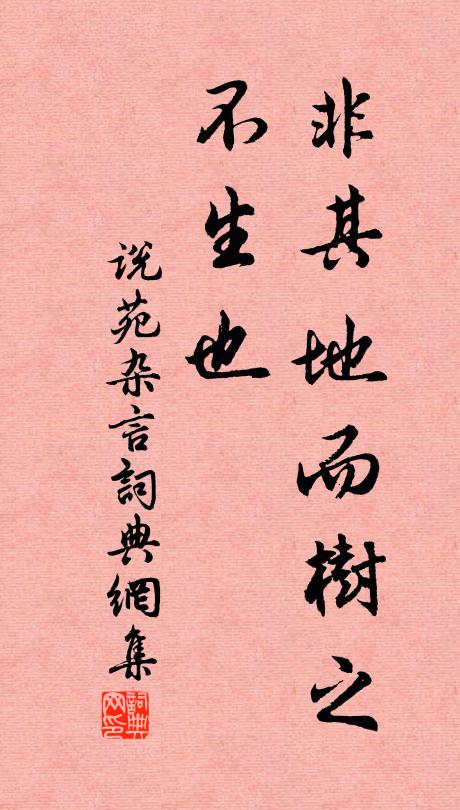 非其地而樹之
不生也
说苑杂言詞典網集
詞典网印